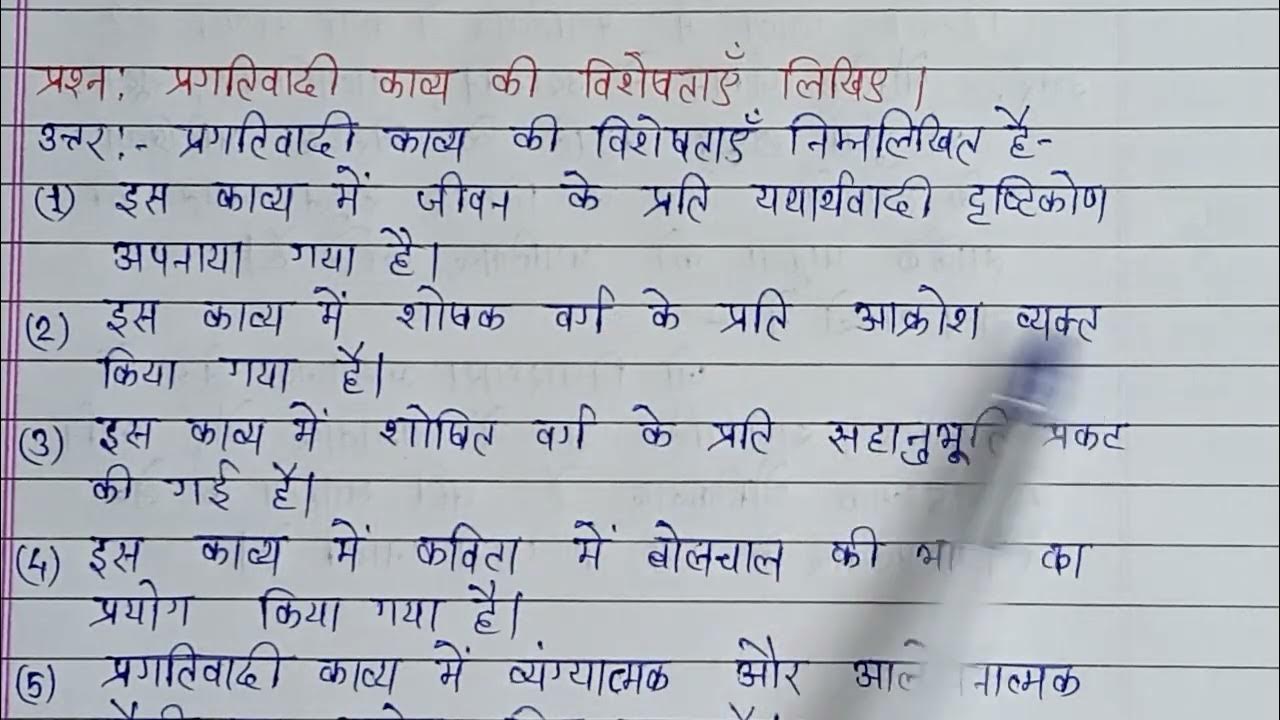 प्रश्न: प्रगतिवादी काव्य की विशेषताएँ लिखिए।
उत्तर:- प्रगतिवादी काव्य की विशेषताएँ निम्नलिखित है-
(1) इस काव्य में जीवन के प्रति यथार्थवादी दृष्टिकोण
अपनाया गया है।
(2) इस काव्य में शोषक वर्ग के प्रति आक्रोश व्यक्त
किया गया है।
(3) इस काव्य में शोषित वर्ग के प्रति सहानुभूति प्रकट
की गई है।
(4) इस काव्य में कविता में बोलचाल की का
प्रयोग किया गया है।
(5) प्रगतिवादी काव्य में व्यंग्यात्मक और